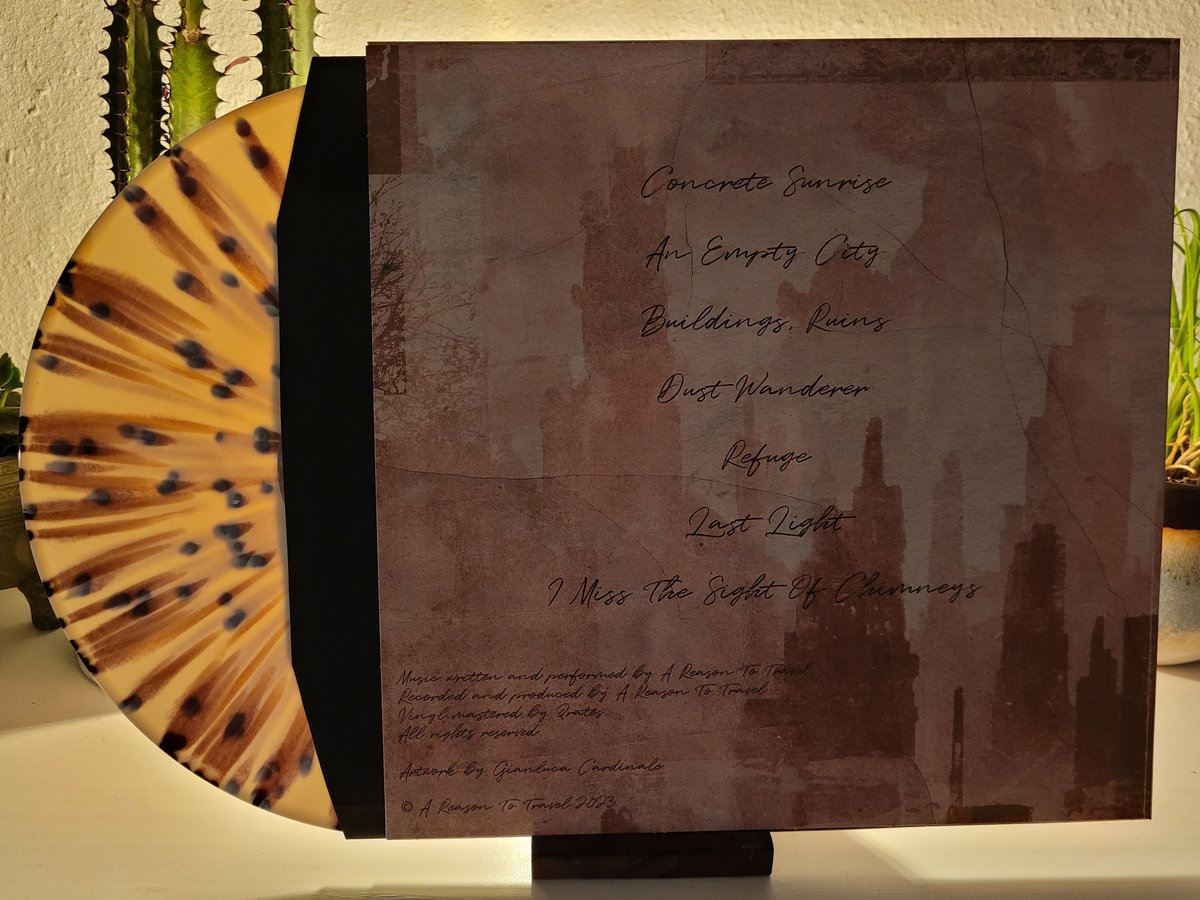 Concrete Sunrise
An Empty City
Buildings, Ruins
Dust Wanderer
Refuge
Last Light
I Miss The Sight Of Chimneys
Music written and performed by A Reason To Travel
Recorded and produced by A Reason To Travel
Vinyl mastered by Qrates
All rights reserved
Artwork by Gianluca Cardinale
© A Reason To Travel 2023